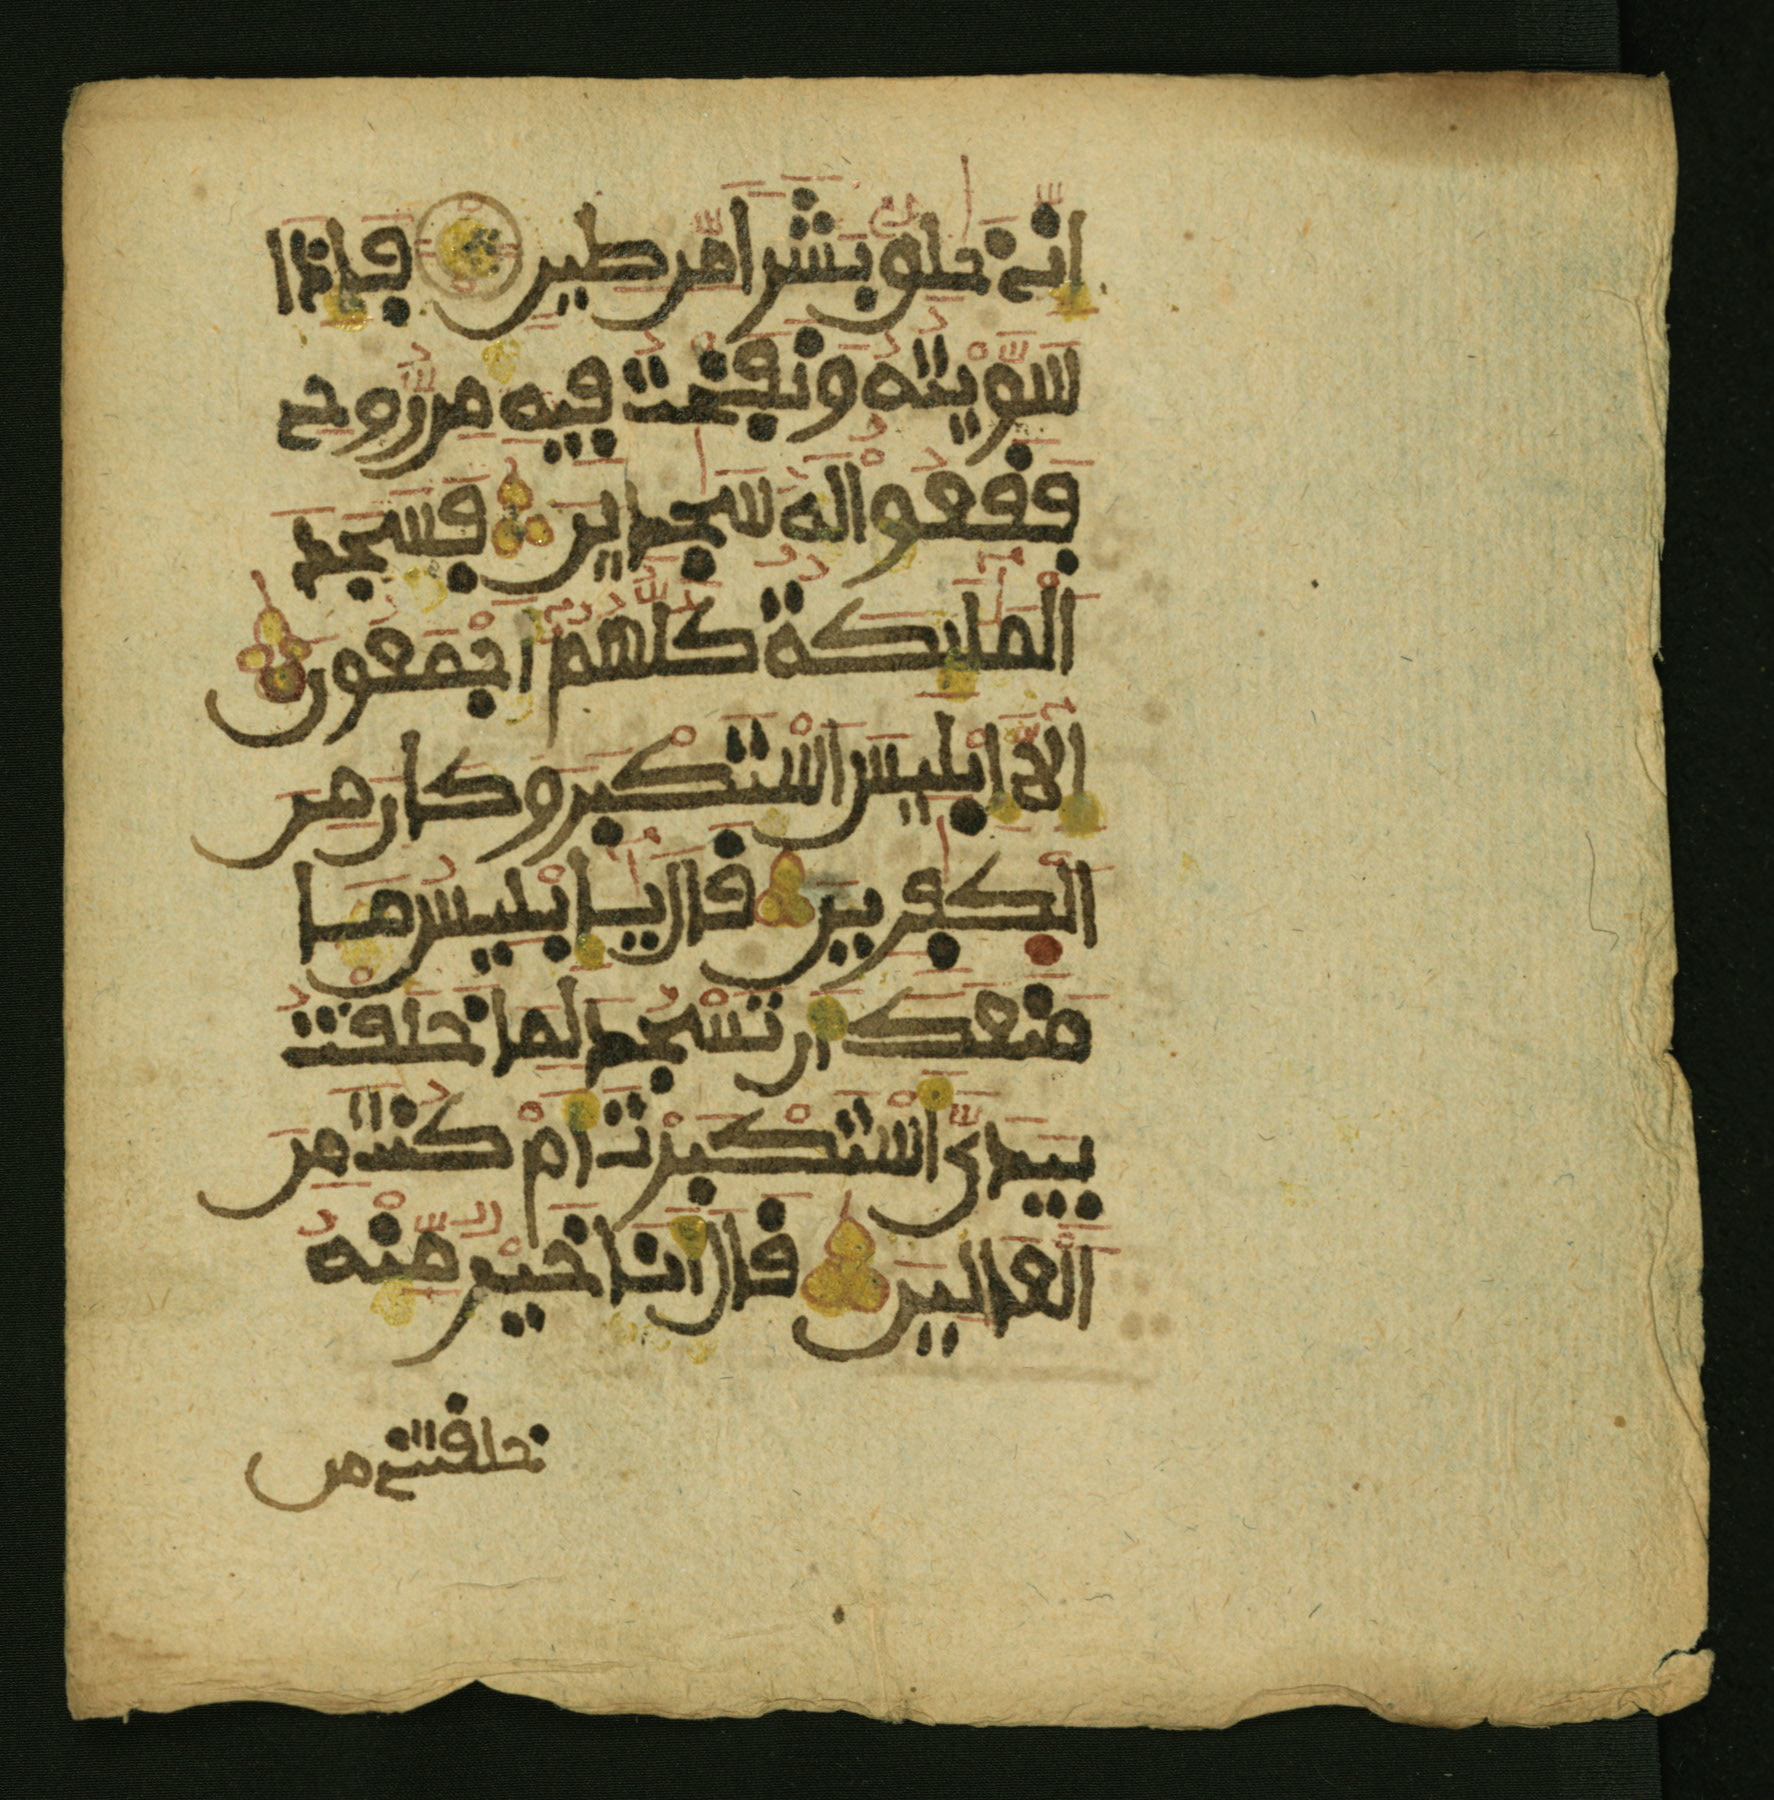 انّے خلو بشرا مّر طير فاذا
سوّيته ونفخت فيه مر رّوحے
ففعوا له سجدير فسجد
الملىكة كلّهم اجمعون
الّا ابليس استكبر وكار مر
الكفرير فال يا ابليس ما
منعك ار تسجد لما خلفت
بيديّ استكبرت ام كنت مر
العالير فال انا خير مّنه
خلفتنے من